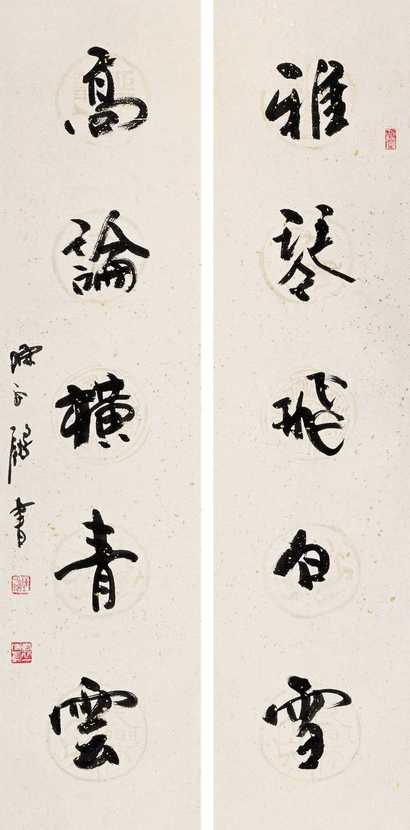 雅琴飛白雪
高論橫青雲
書